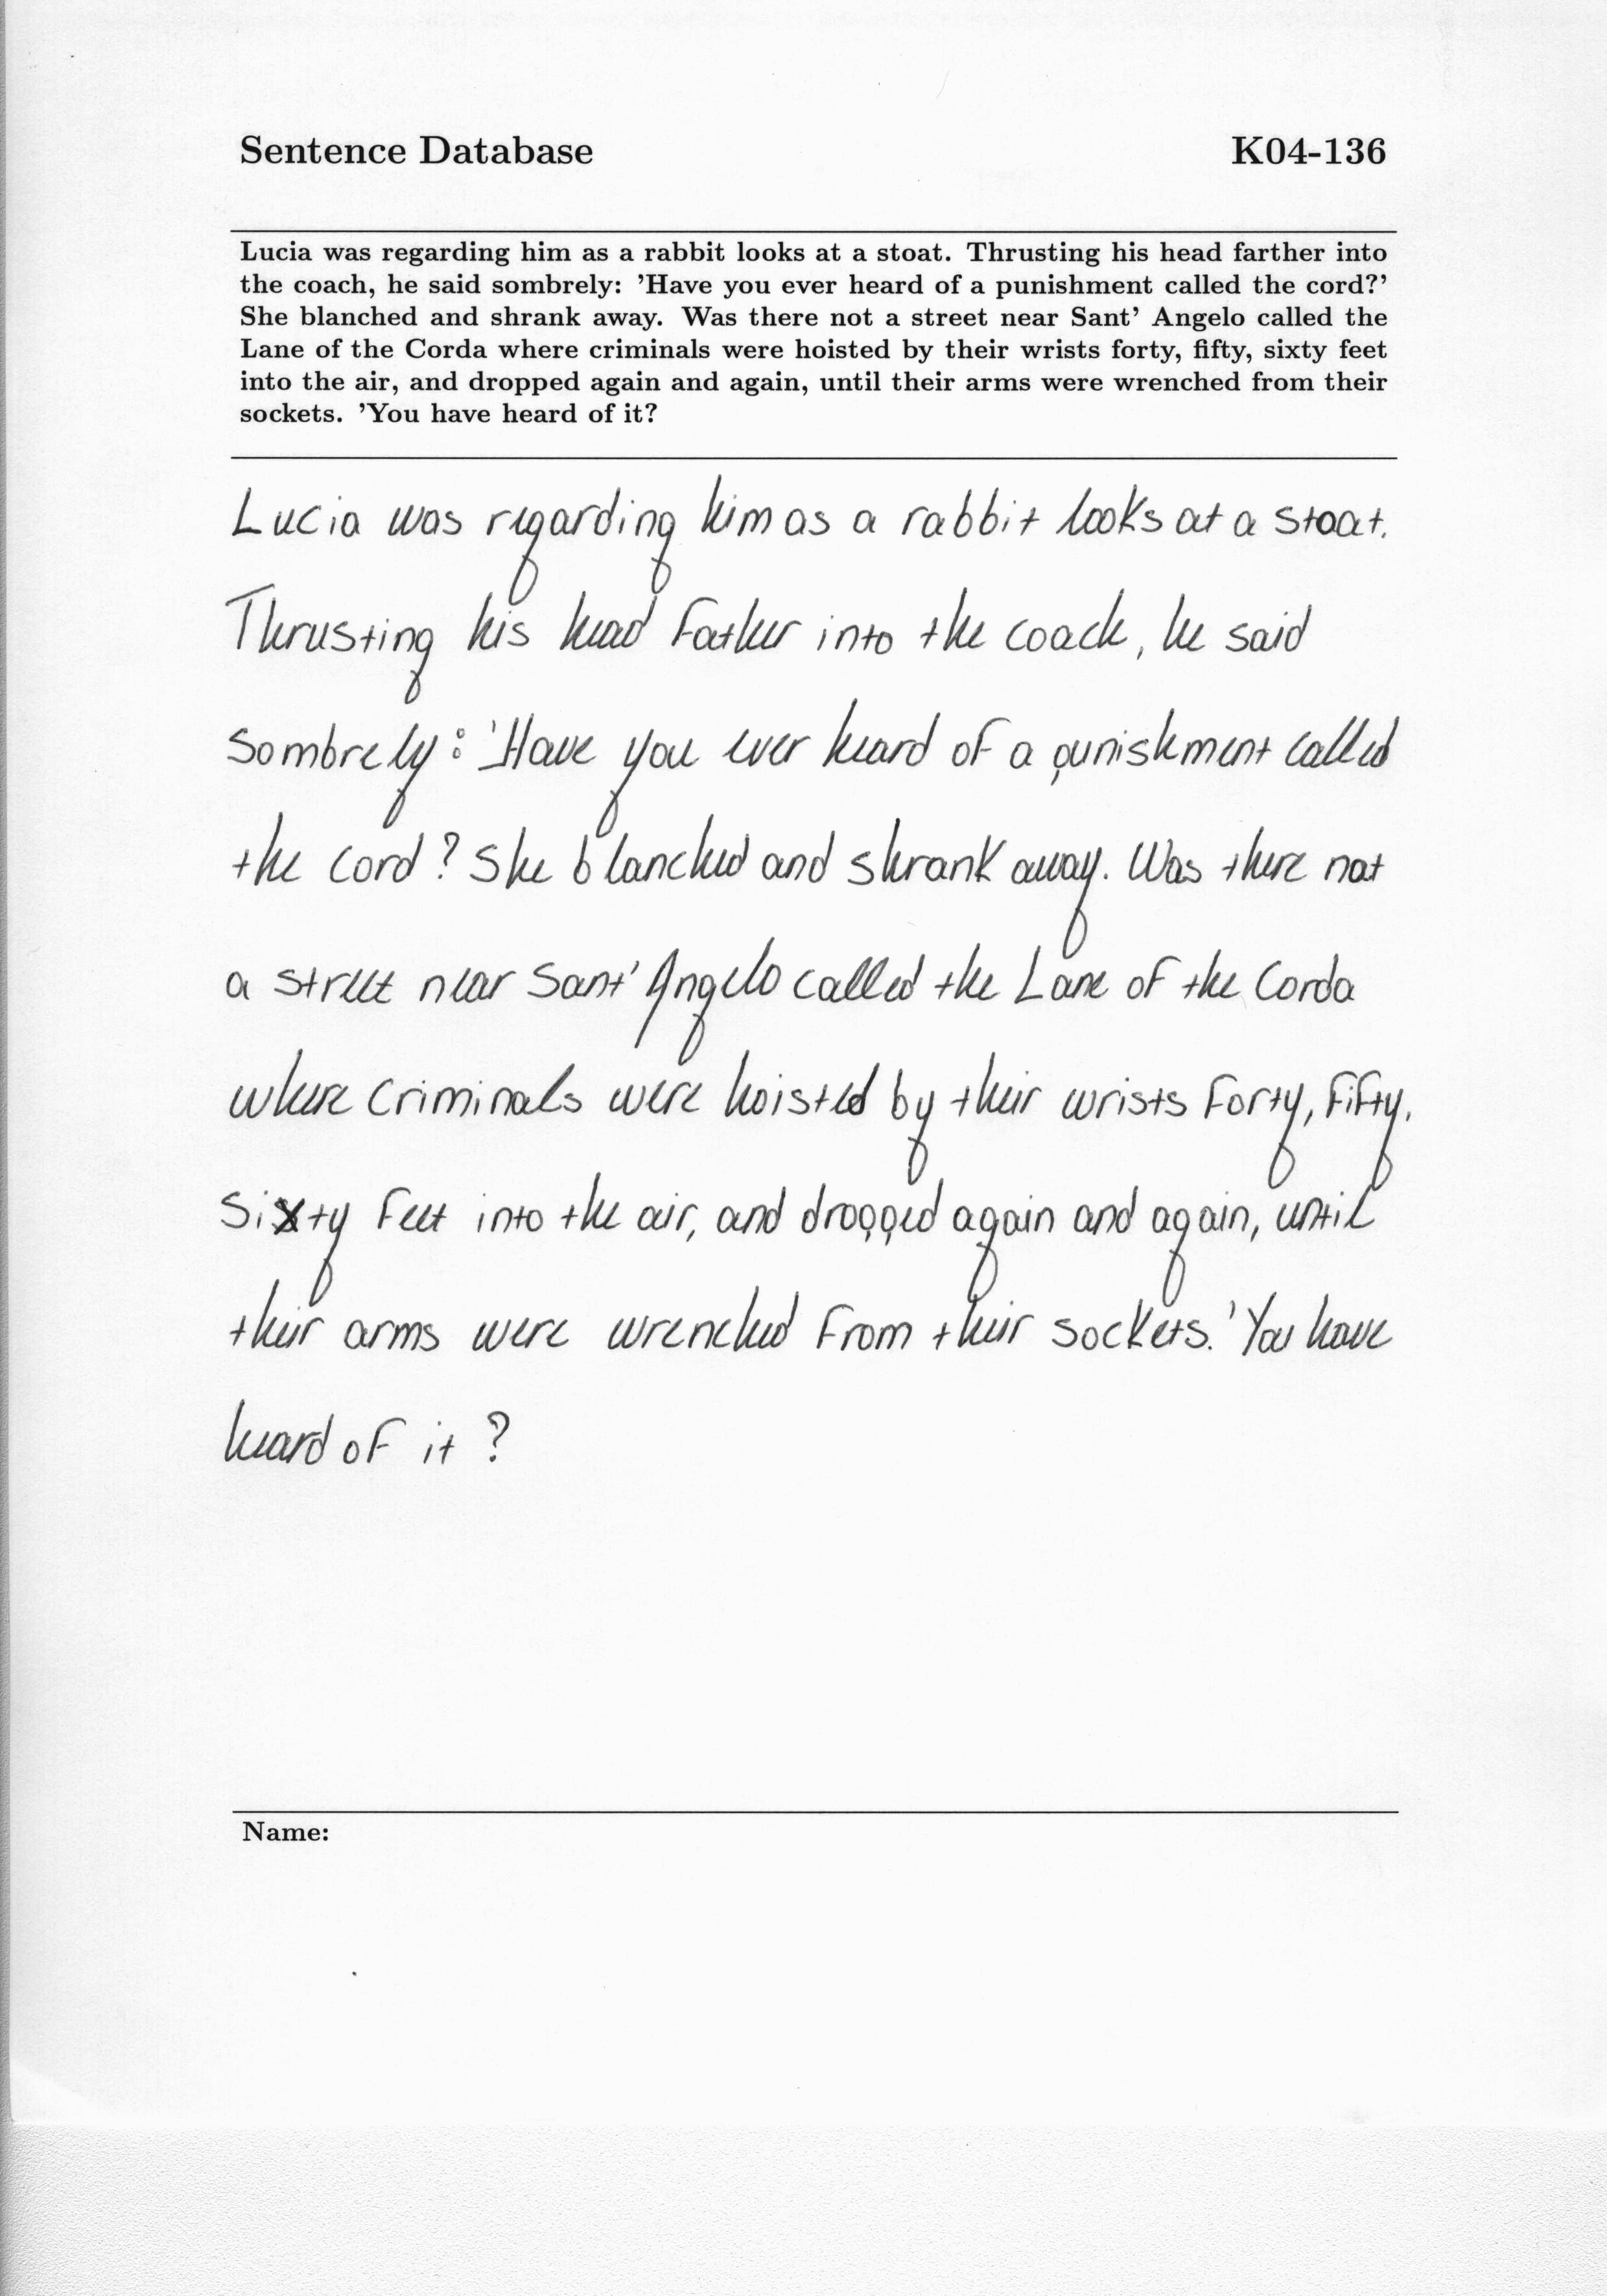 Sentence Database K04-136
Lucia was regarding him as a rabbit looks at a stoat. Thrusting his head farther into
the coach, he said sombrely: 'Have you ever heard of a punishment called the cord?'
She blanched and shrank away. Was there not a street near Sant' Angelo called the
Lane of the Corda where criminals were hoisted by their wrists forty, fifty, sixty feet
into the air, and dropped again and again, until their arms were wrenched from their
sockets. 'You have heard of it?
Lucia was regarding him as a rabbit looks at a stoat.
Thrusting his head father into the coach, he said
sombrely: 'Have you ever heard of a punishment called
the cord? She blanched and shrank away. Was there not
a street near Sant' Angelo called the Lane of the Corda
where criminals were hoisted by their wrists forty, fifty,
sixty feet into the air, and dropped again and again, until
their arms were wrenched from their sockets. 'You have
heard of it?
Name: